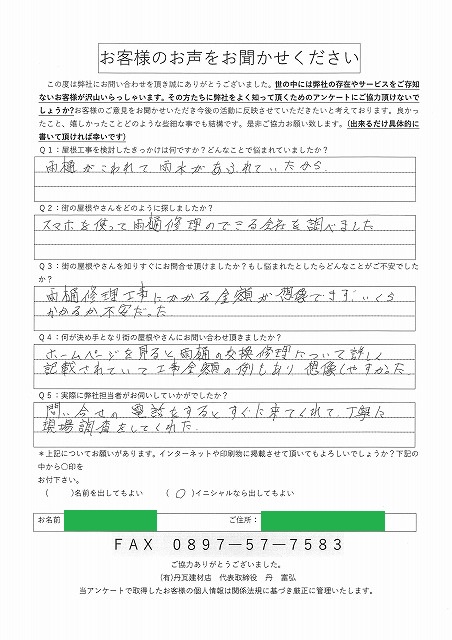 お客様のお声をお聞かせください
この度は弊社にお問い合わせを頂き誠にありがとうございました。世の中には弊社の存在やサービスをご存知
ないお客様が沢山いらっしゃいます。その方たちに弊社をよく知って頂くためのアンケートにご協力頂けないで
しょうか?お客様のご意見をお聞かせいただき今後の活動に反映させていただきたいと考えております。良かっ
たこと、嬉しかったことどのような些細な事でも結構です。是非ご協力お願い致します。(出来るだけ具体的に
書いて頂ければ幸いです)
Q1:屋根工事を検討したきっかけは何ですか?どんなことで悩まれていましたか?
雨樋がこわれて雨水があふれていたから.
Q2:街の屋根やさんをどのように探しましたか?
スマホを使って雨樋修理のできる会社を調べました
Q3:街の屋根やさんを知りすぐにお問合せ頂けましたか?もし悩まれたとしたらどんなことがご不安でした
か?
雨樋修理工事にかかる金額が想像できず.いくら
かかるか不安だった.
Q4:何が決め手となり街の屋根やさんにお問い合わせ頂きましたか?
ホームページを見ると雨樋の交換修理について詳しく
記載されていて工事金額の例もあり想像しやすかった
Q5:実際に弊社担当者がお伺いしていかがでしたか?
問い合せの電話をするとすぐに来てくれて.丁寧に
現場調査をしてくれた.
*上記についてお願いがあります。インターネットや印刷物に掲載させて頂いてもよろしいでしょうか?下記の
中から○印を
お付下さい。
( )名前を出してもよい (○)イニシャルなら出してもよい
お名前 ご住所:
FAX 0897-57-7583
ご協力ありがとうございました。
(有)丹瓦建材店 代表取締役 丹 富弘
当アンケートで取得したお客様の個人情報は関係法規に基づき厳正に管理いたします。